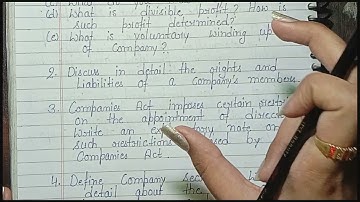 (d) What is divisible profit? How is
such profit determined?
(e) What is voluntary winding up
of Company?
2. Discuss in detail the rights and
Liabilities of a Company's members
3. Companies Act imposes certain restri
on the appointment of direc
Write an ex ory note on
such restrictions sed by
Companies Act.
4. Define Company sec
detail about the